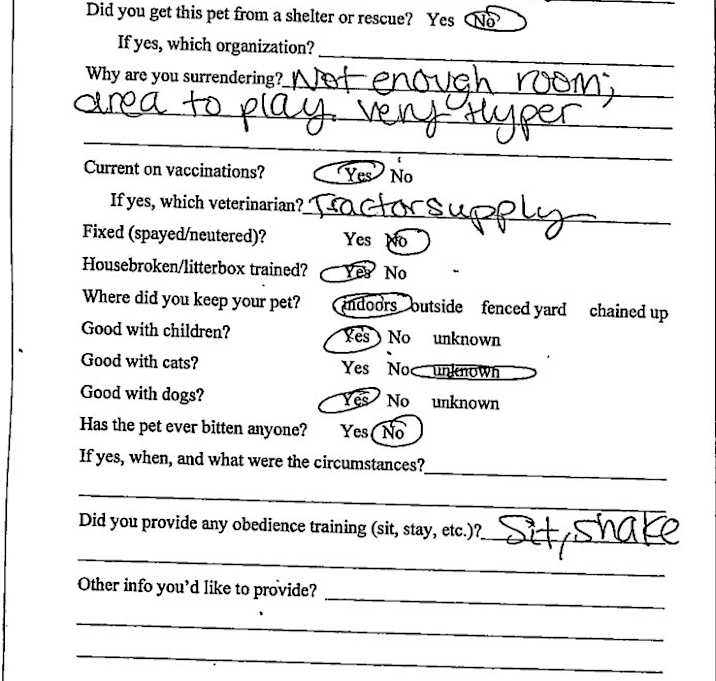 Did you get this pet from a shelter or rescue? Yes No
If yes, which organization?
Why are you surrendering? Not enough room;
area to play. very Hyper
Current on vaccinations? Yes No
If yes, which veterinarian? Tractor supply
Fixed (spayed/neutered)? Yes No
Housebroken/litterbox trained? Yes No
Where did you keep your pet? indoors outside fenced yard chained up
Good with children? Yes No unknown
Good with cats? Yes No unknown
Good with dogs? Yes No unknown
Has the pet ever bitten anyone? Yes No
If yes, when, and what were the circumstances?
Did you provide any obedience training (sit, stay, etc.)? Sit, shake
Other info you'd like to provide?